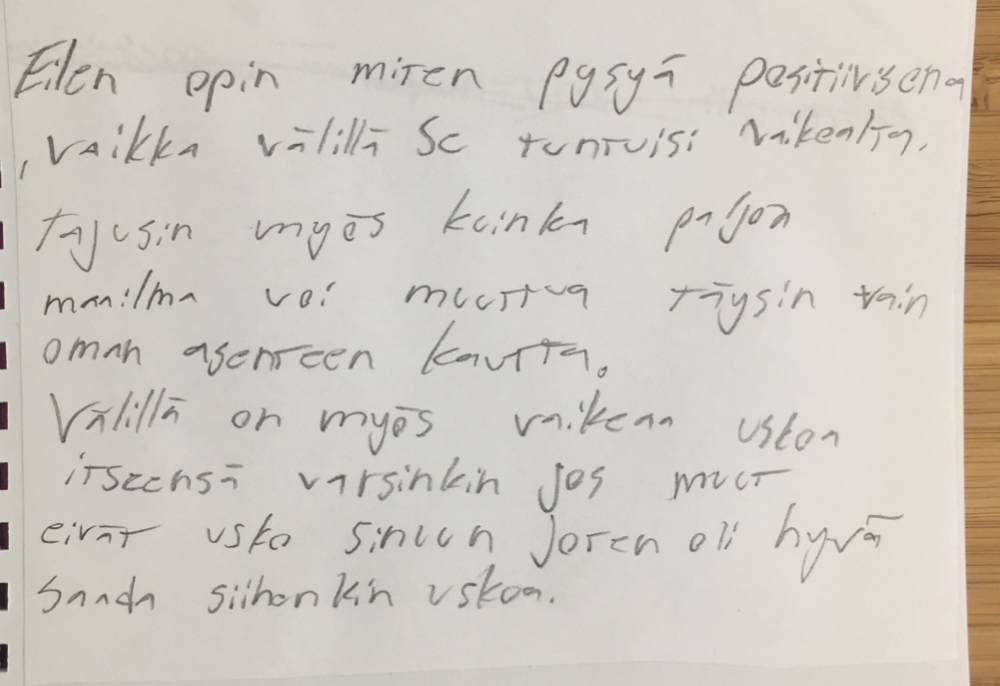 Eilen opin miten pysyä positiivisena
, vaikka välillä se tuntuisi vaikealta.
Tajusin myös kuinka paljon
maailma voi muuttua täysin vain
oman asenteen kautta.
Välillä on myös vaikeaa uskoa
itseensä varsinkin jos muut
eivät usko sinuun joten oli hyvä
saada siihenkin uskoa.